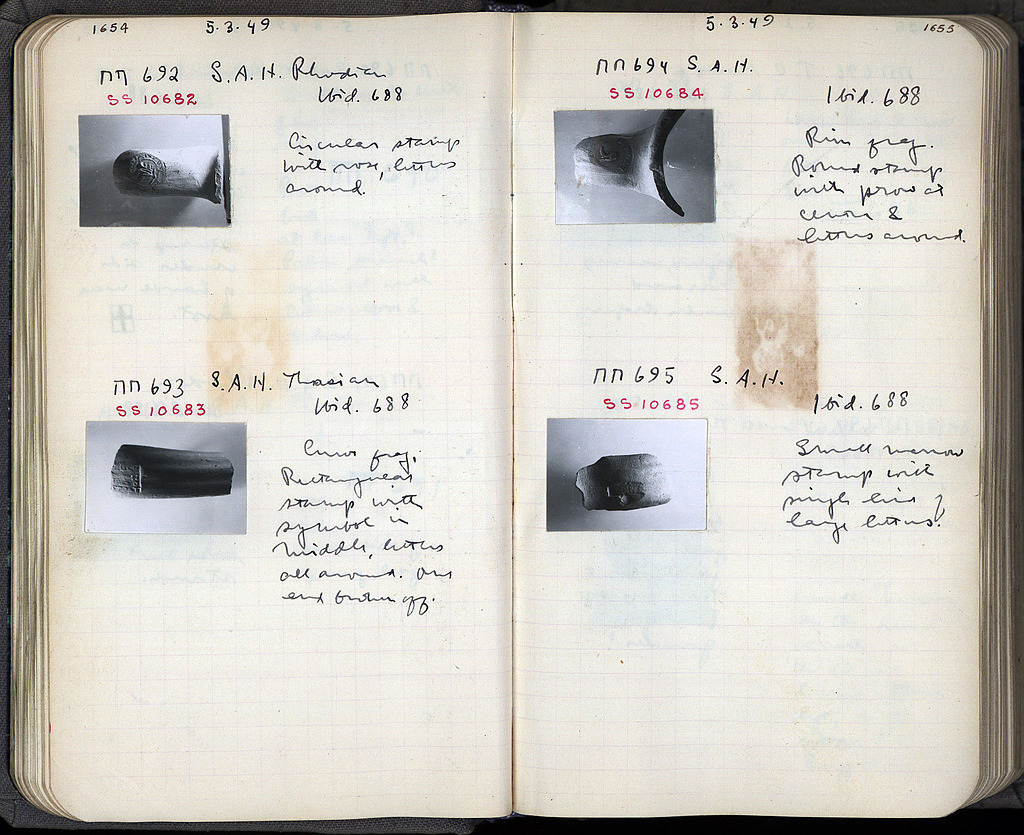 1654
5.3.49
ΠΠ 692 S.A.H. Rhodian
SS 10682
Ibid. 688
Circular stamp
with rose, letters
around.
ΠΠ 693 S.A.H. Thasian
SS 10683
Ibid. 688
frag.
Rectangular
stamp with
symbol in
middle, letters
all around. One
end broken off.
5.3.49
1655
ΠΠ 694 S.A.H.
SS 10684
Ibid. 688
Rim frag.
Round stamp
with prow at
center &
letters around.
ΠΠ 695 S.A.H.
SS 10685
Ibid. 688
Small narrow
stamp with
single line of
large letters.